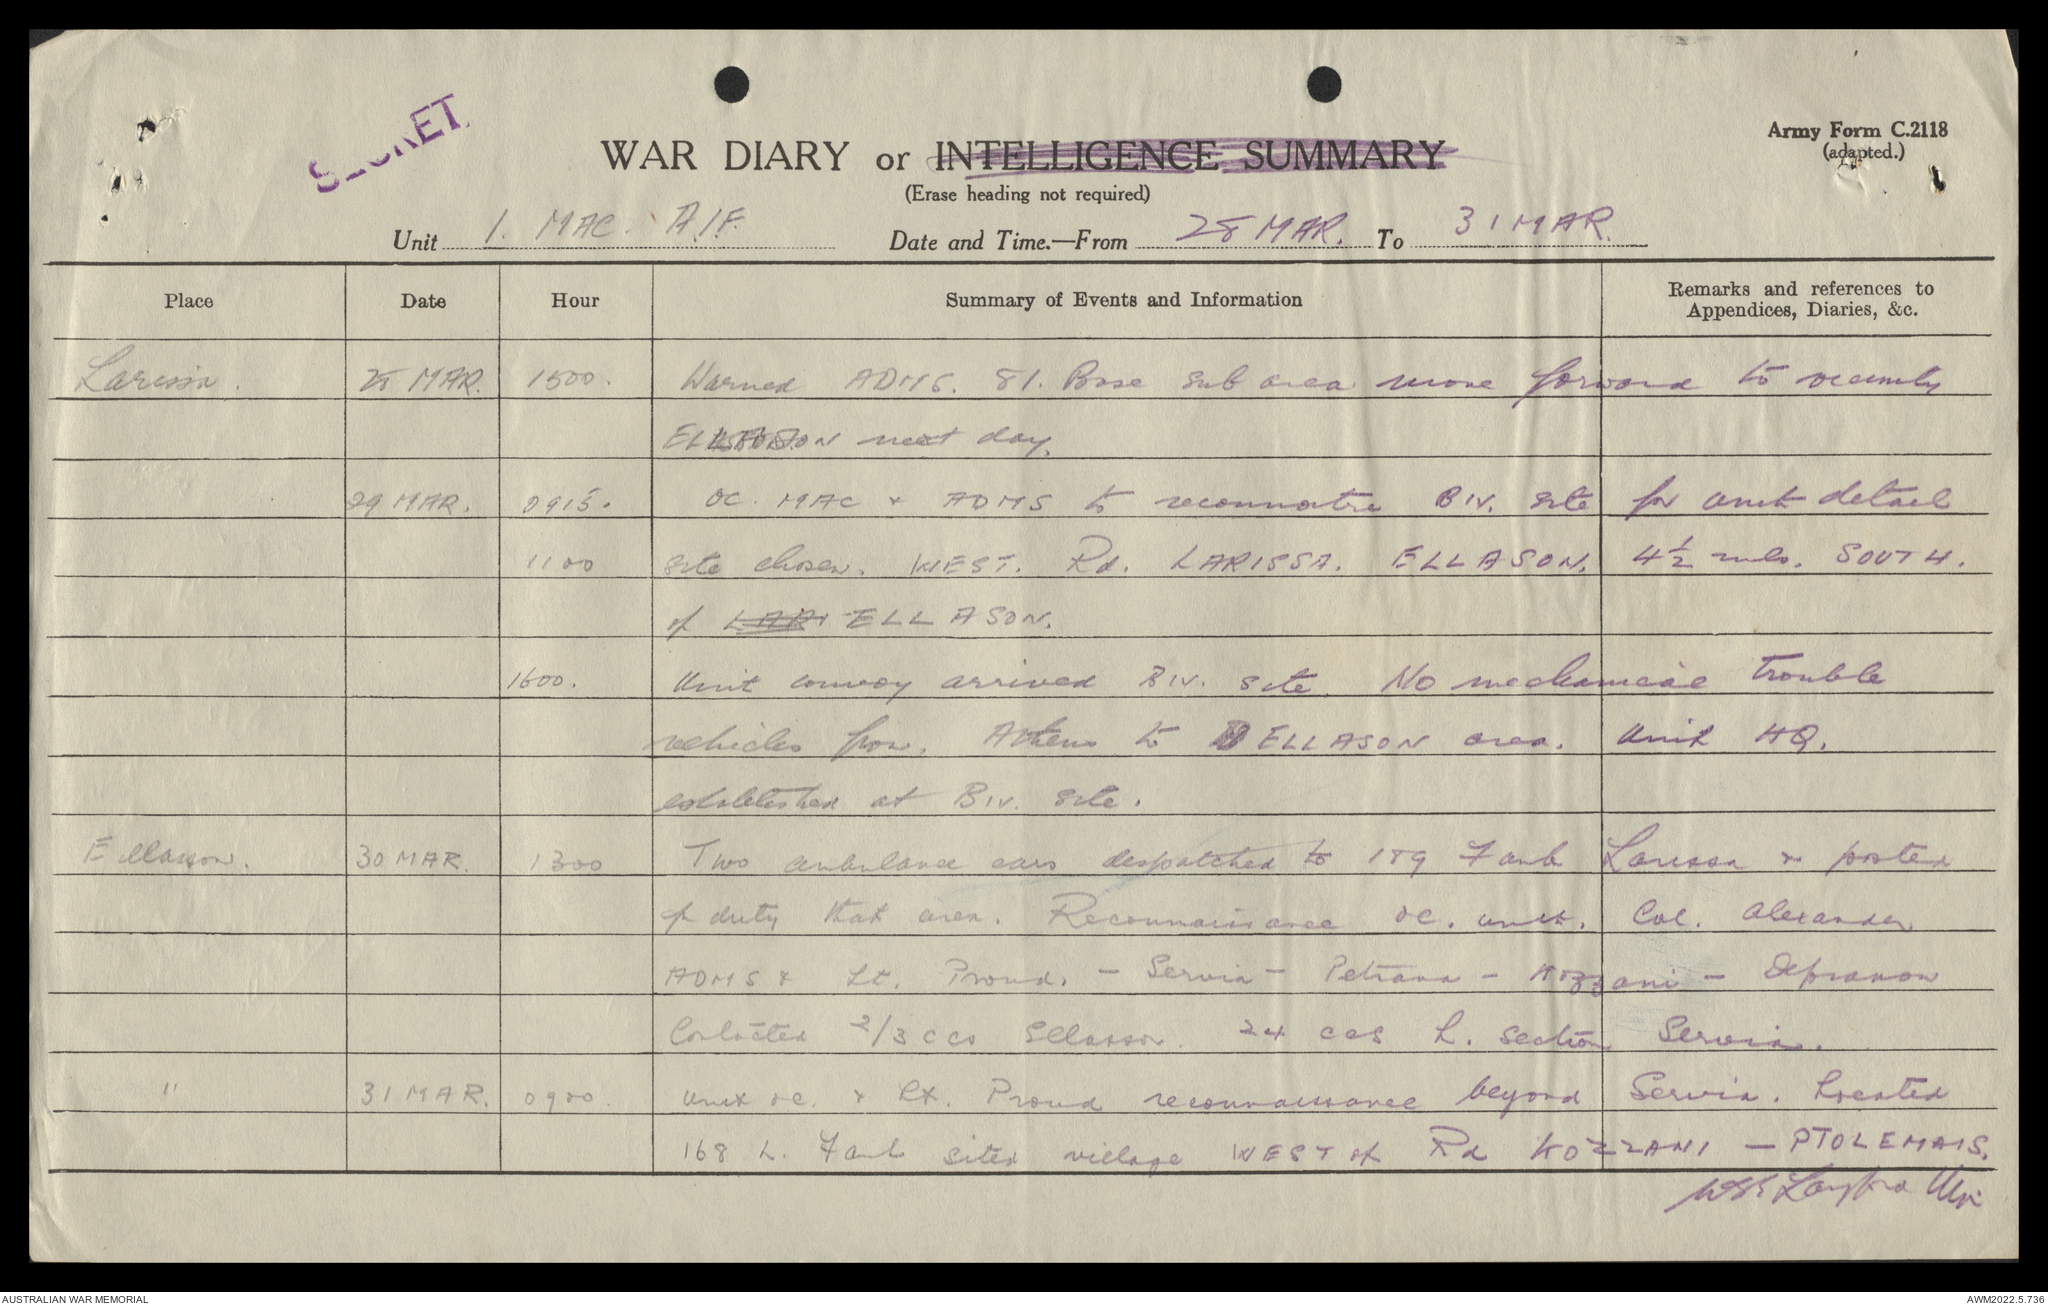 SECRET
Army Form C.2118
(adapted.)
WAR DIARY or INTELLIGENCE SUMMARY
(Erase heading not required)
Unit 1. MAC. A.I.F. Date and Time.—From 28 MAR. To 31 MAR.
Place Date Hour Summary of Events and Information Remarks and references to Appendices, Diaries, &c.
Larissa. 28 MAR. 1500. Warned ADMS. 81. Base sub area move forward to vicinity
ELLASON next day.
29 MAR. 0915. OC. MAC & ADMS to reconnoitre BIV. site for unit detail
1100 site chosen. WEST. Rd. LARISSA. ELLASON. 4½ mls. SOUTH.
of LAR ELLASON.
1600. Unit convoy arrived BIV. site. No mechanical trouble
vehicles from. Athens to ELLASON area. Unit HQ.
established at BIV. site.
Ellasson. 30 MAR. 1300 Two ambulance cars despatched to 189 Famb Larissa & posted
of duty that area. Reconnaissance OC. unit. Col. Alexander
ADMS & Lt. Proud. - Servia - Petrana - Kozzani -
Contacted 2/3 CCS Ellasson. 24 CCS L. section Servia.
" 31 MAR. 0900. Unit OC. & Lt. Proud reconnaissance beyond Servia. Located
168 L. Famb sited village WEST of Rd KOZZANI — PTOLEMAIS.
AUSTRALIAN WAR MEMORIAL
AWM2022.5.736